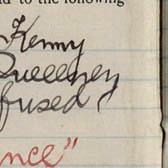 to the following
Kenny
Sweeney
fused
nce"